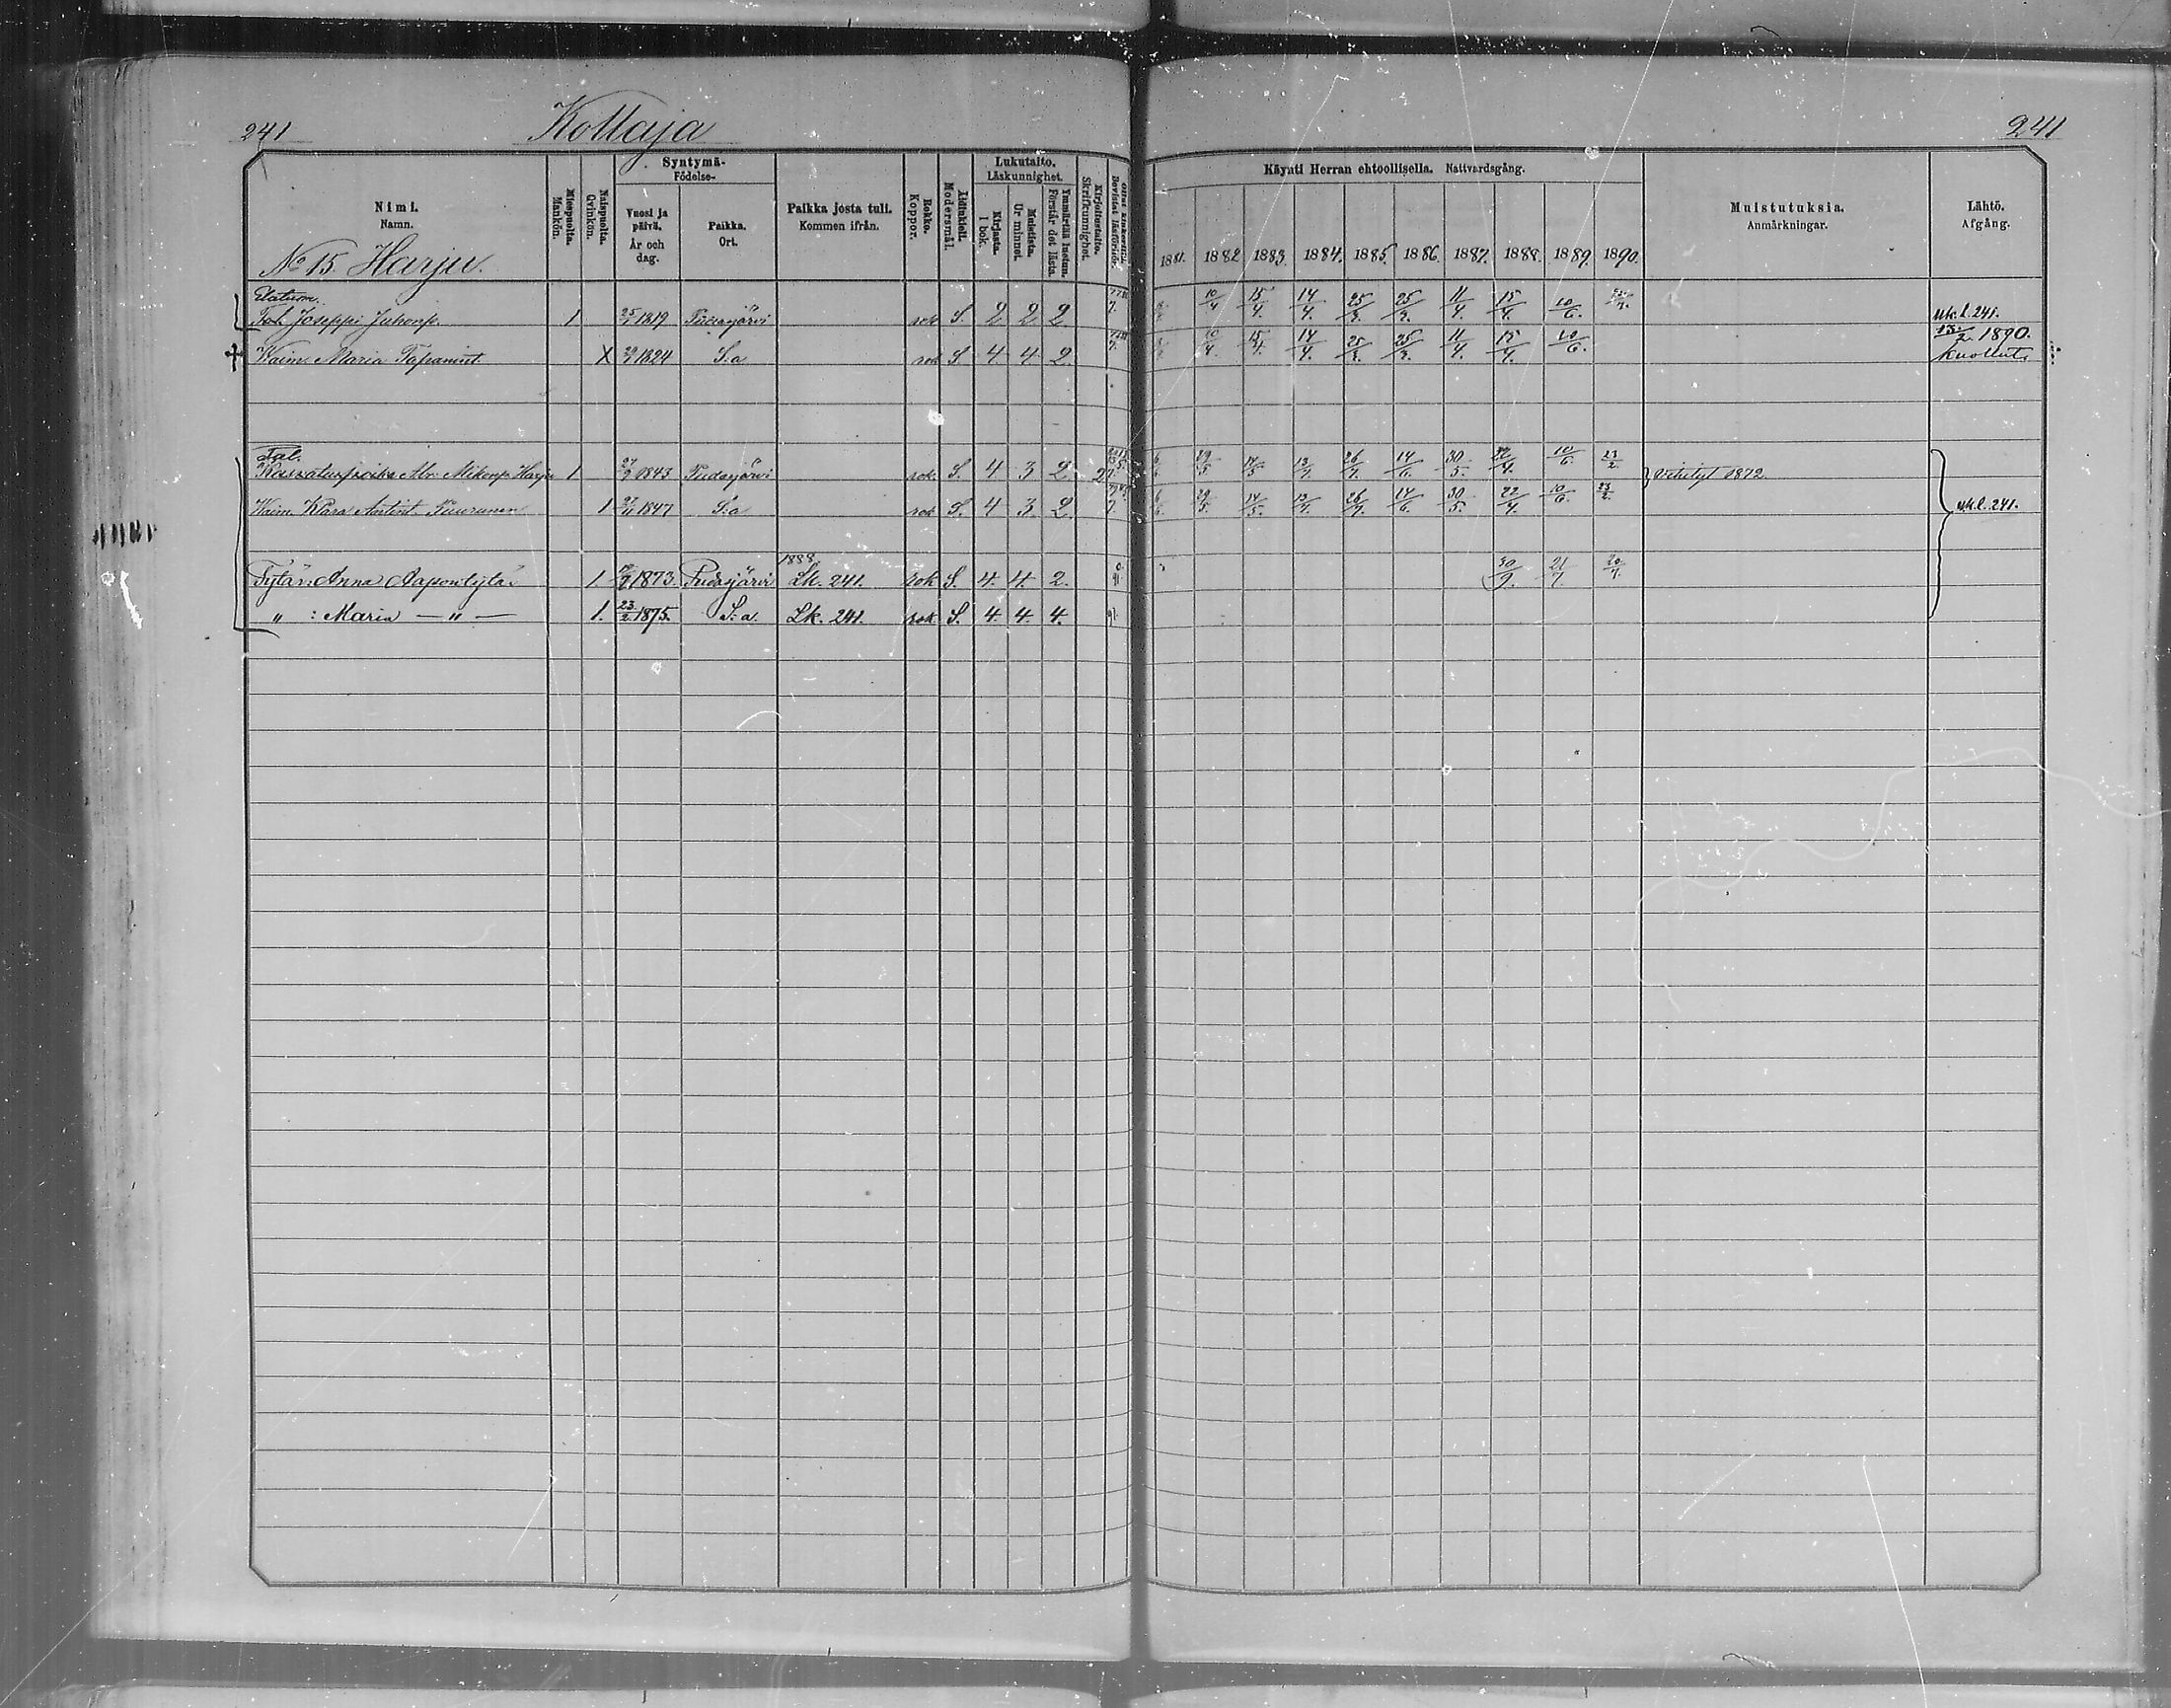 241 Kollaja 241
Nimi. Namn. Miespuolta. Mankön. Naispuolta. Qvinkön. Syntymä- Födelse- Vuosi ja päivä. År och dag. Paikka. Ort. Paikka josta tuli. Kommen ifrån. Rokko. Koppor. Äidinkieli. Modersmål. Lukutaito. Läskunnighet. Kirjasta. I bok. Muistista. Ur minnet. Ymmärtää luetun. Förstår det lästa. Kirjoitustaito. Skrifkunnighet. Bevistat läsförhör. Käynti Herran ehtoollisella. Nattvardsgång. Muistutuksia. Anmärkningar. Lähtö. Afgång.
No 15. Harju. 1881. 1882 1883. 1884. 1885. 1886. 1887. 1888. 1889. 1890.
Elatusm.
Tal. Joseppi Juhonp. 1 25/1 1819 Pudasjärvi rok S. 2 2 2 7. 10/4 15/4. 14/4. 25/3. 25/3. 11/4. 15/4. 10/6. uk.l. 241.
Vaim. Maria Tapanint. X 1824 S:a rok S. 4 4 2. 7. 10/4. 15/4. 14/4. 25/3. 25/3. 11/4. 15/4. 10/6. 13/2. 1890. kuollut.
Tal.
Kasvatuspoika Abr. Mikonp. Harju 1 27/9 1843 Pudasjärvi rok. S. 4 3 2 2 29/5. 14/5 13/7. 26/7. 14/6. 30/5. 22/4. 10/6. 23/2. Vihityt 1872.
Vaim. Klara Antint. Puurunen 1 27/11 1847 S:a rok S. 4 3. 2. 7. 29/5. 14/5. 13/7. 26/7. 14/6. 30/5. 22/4. 10/6. 23/2. uk.l. 241.
1888
Tytär: Anna Aapontytär 1. 1873. Pudasjärvi Lk. 241. rok S. 4. 4. 2. 91. 30/9. 21/7. 20/7.
" : Maria — " — 1. 23/2. 1875. S:a. Lk. 241. rok S. 4. 4. 4. 91.